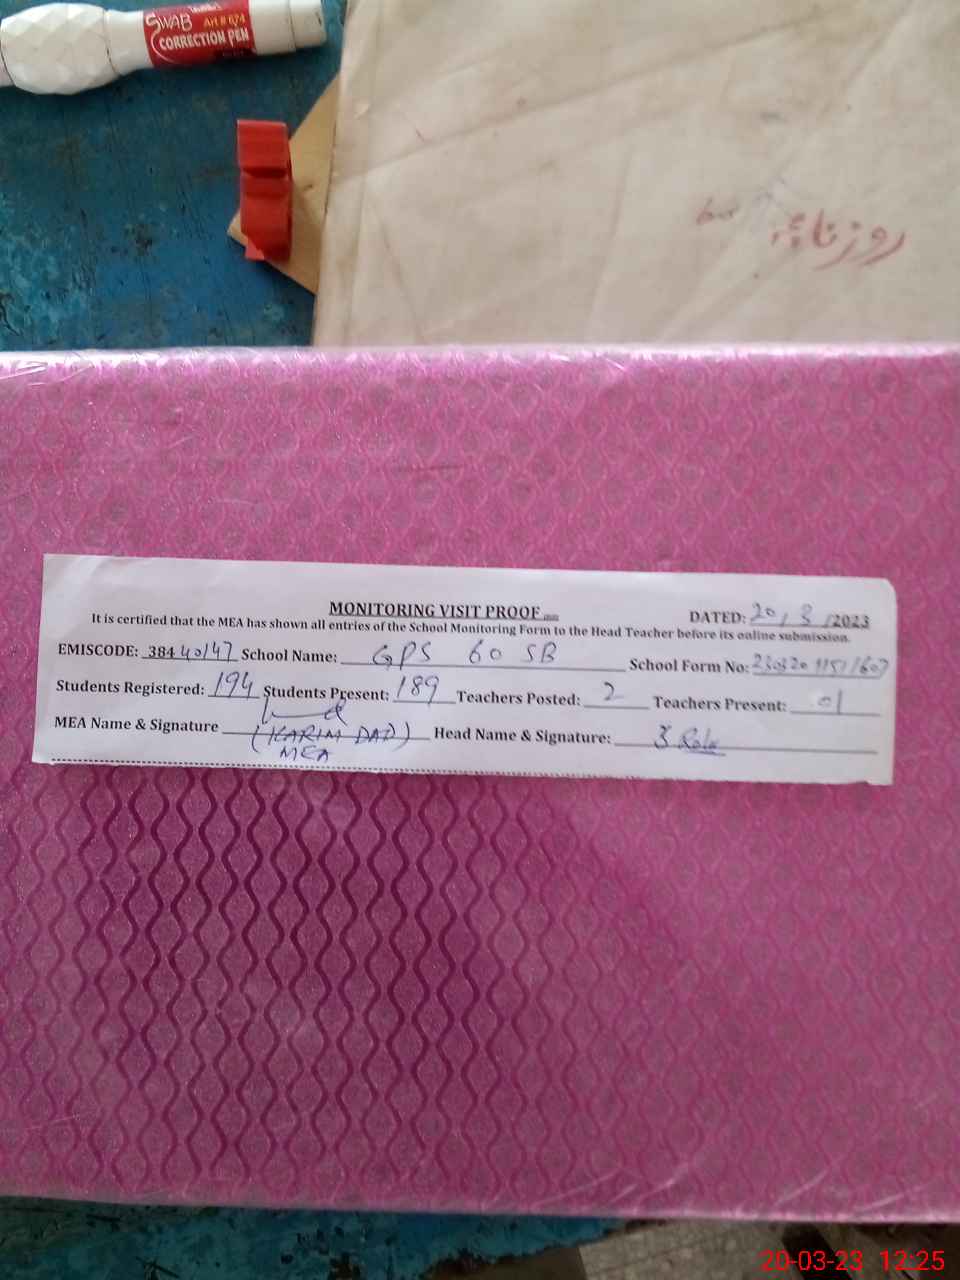 SWAB Art # 674
CORRECTION PEN
روزنامچہ
MONITORING VISIT PROOF
DATED: 20, 3 /2023
It is certified that the MEA has shown all entries of the School Monitoring Form to the Head Teacher before its online submission.
EMISCODE: 38440147 School Name: GPS 60 SB School Form No:
Students Registered: 194 Students Present: 189 Teachers Posted: 2 Teachers Present: 01
MEA Name & Signature (KARIM DAD) Head Name & Signature:
MEA
20-03-23 12:25